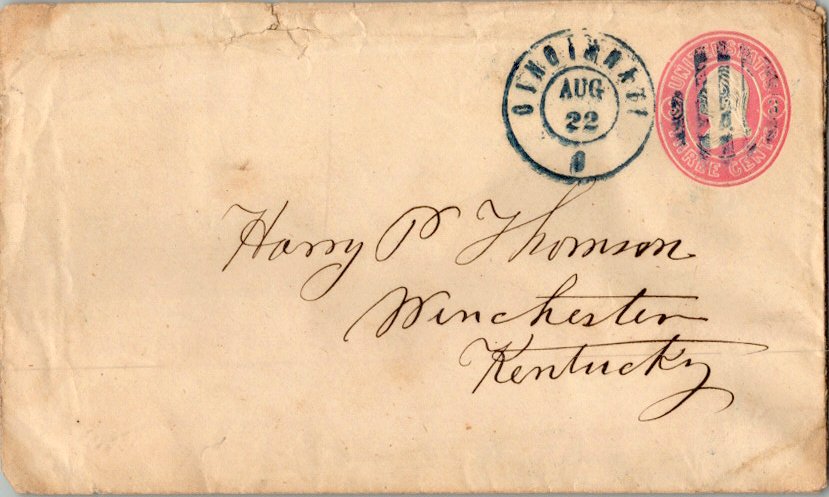 CINCINNATI
AUG
22
O
UNITED STATES
THREE CENTS
Harry P Thomson
Winchester
Kentucky